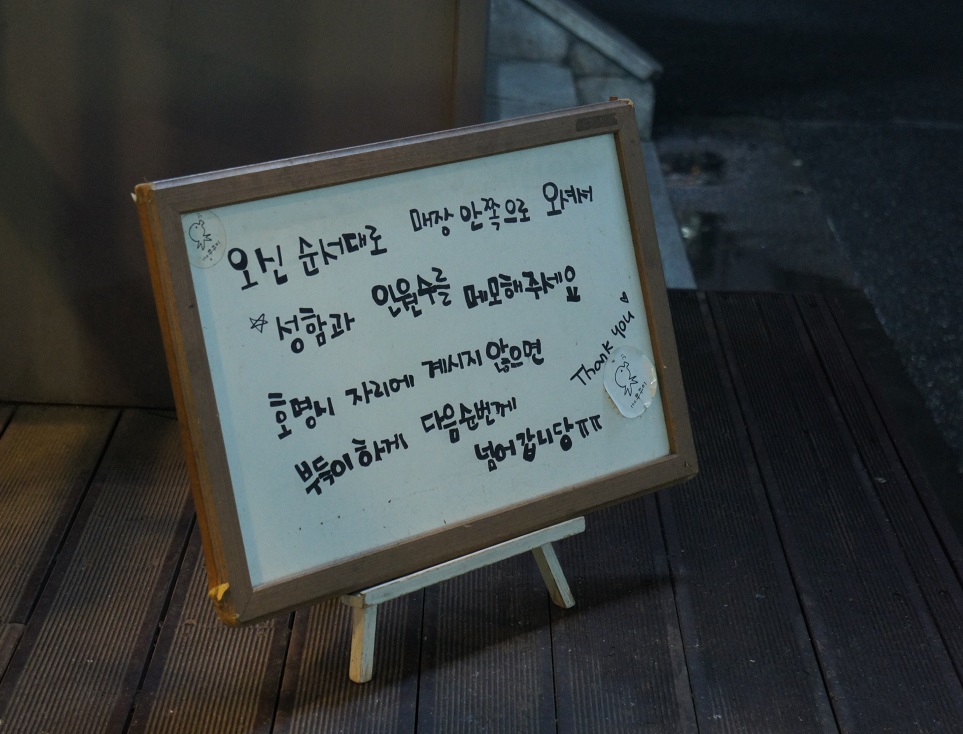 오신 순서대로 매장 안쪽으로 오셔서
☆ 성함과 인원수를 메모해주세요
호명시 자리에 계시지 않으면
부득이하게 다음순번께
넘어갑니당ㅠㅠ
Thank you ♡